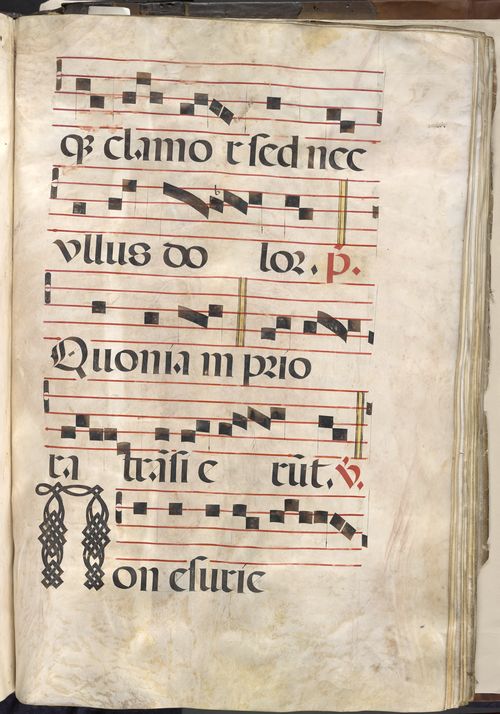 qꝫ clamo r sed nec
vllus do lor. p.
Quonia m prio
ra trãsi e rũt. v.
Non esurie